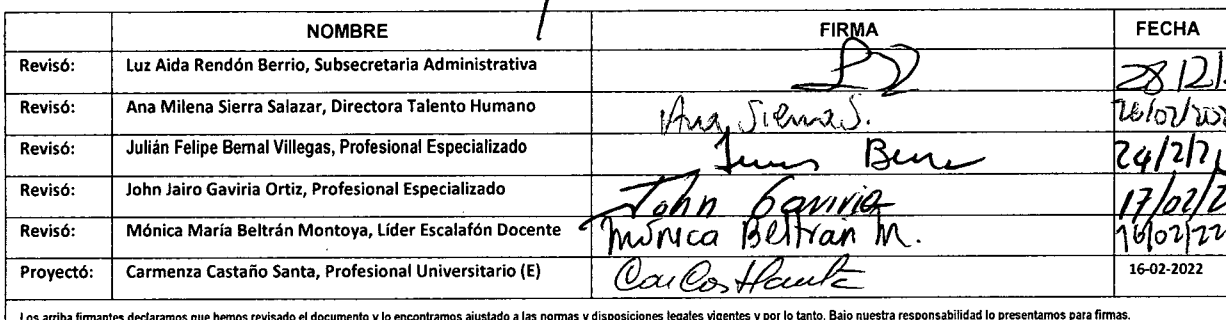 NOMBRE FIRMA FECHA
Revisó: Luz Aida Rendón Berrio, Subsecretaria Administrativa 28/2/
Revisó: Ana Milena Sierra Salazar, Directora Talento Humano Ana Sierra S.
Revisó: Julián Felipe Bernal Villegas, Profesional Especializado 24/2/2
Revisó: John Jairo Gaviria Ortiz, Profesional Especializado John Gaviria 17/02/2
Revisó: Mónica María Beltrán Montoya, Líder Escalafón Docente Mónica Beltrán M. 16/02/22
Proyectó: Carmenza Castaño Santa, Profesional Universitario (E) 16-02-2022
Los arriba firmantes declaramos que hemos revisado el documento y lo encontramos ajustado a las normas y disposiciones legales vigentes y por lo tanto, Bajo nuestra responsabilidad lo presentamos para firmas.